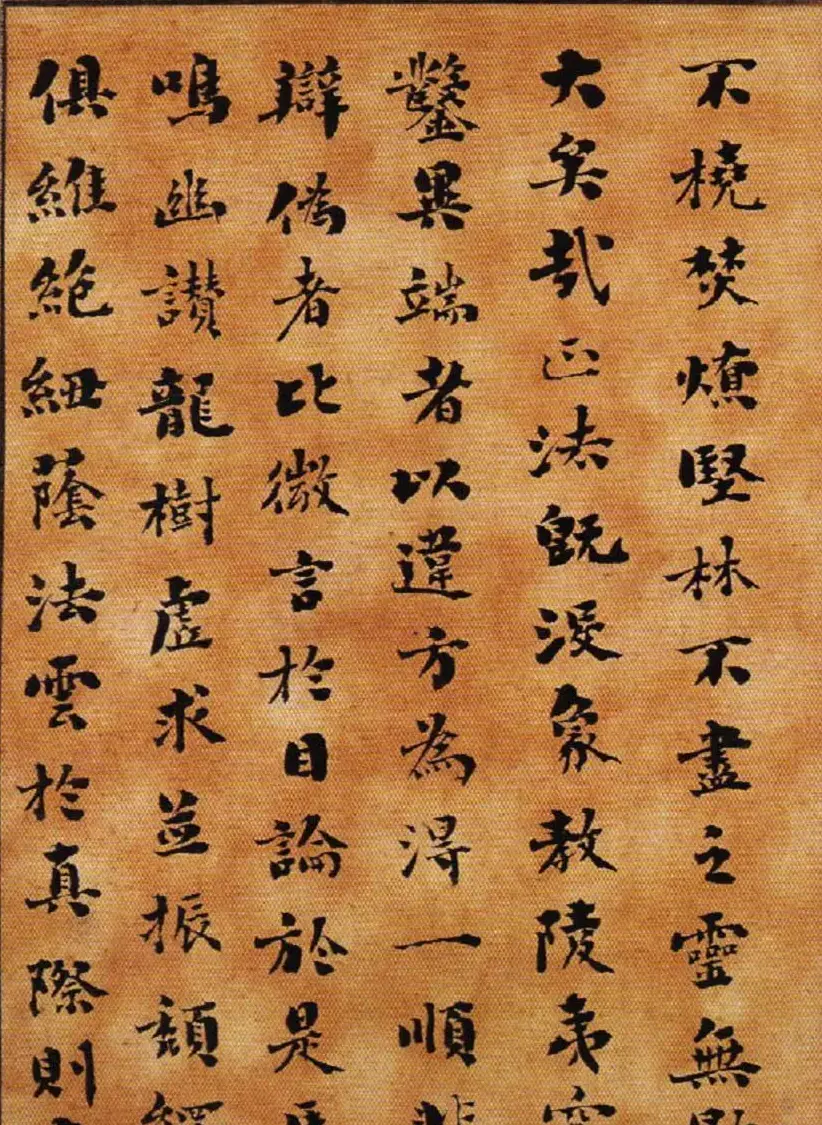 不橈焚燎堅林不盡之靈無
大矣哉正法既没象教陵夷
鑿異端者以違方為得一順
辯偽者比微言於目論於是
鳴幽讚龍樹虛求並振頹
俱維絕紐蔭法雲於真際則